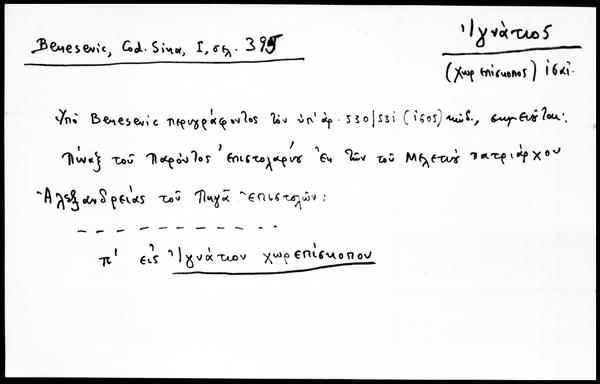 Benesevic, Cod. Sina, I, σελ. 395
Ἰγνάτιος
(χωρεπίσκοπος) ις αἰ.
Ὑπὸ Benesevic περιγράφοντος τὸν ὑπ' ἀρ. 530/531 (1605) κώδ., σημειοῦται:
Πίναξ τοῦ παρόντος ἐπιστολαρίου ἐκ τῶν τοῦ Μελετίου πατριάρχου
Ἀλεξανδρείας τοῦ Πηγᾶ ἐπιστολῶν:
π' εἰς Ἰγνάτιον χωρεπίσκοπον